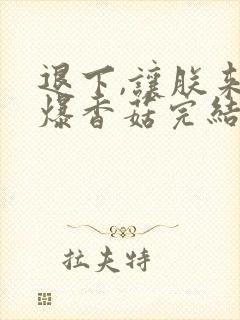 退下,讓朕來
爆香菇完結
拉夫特